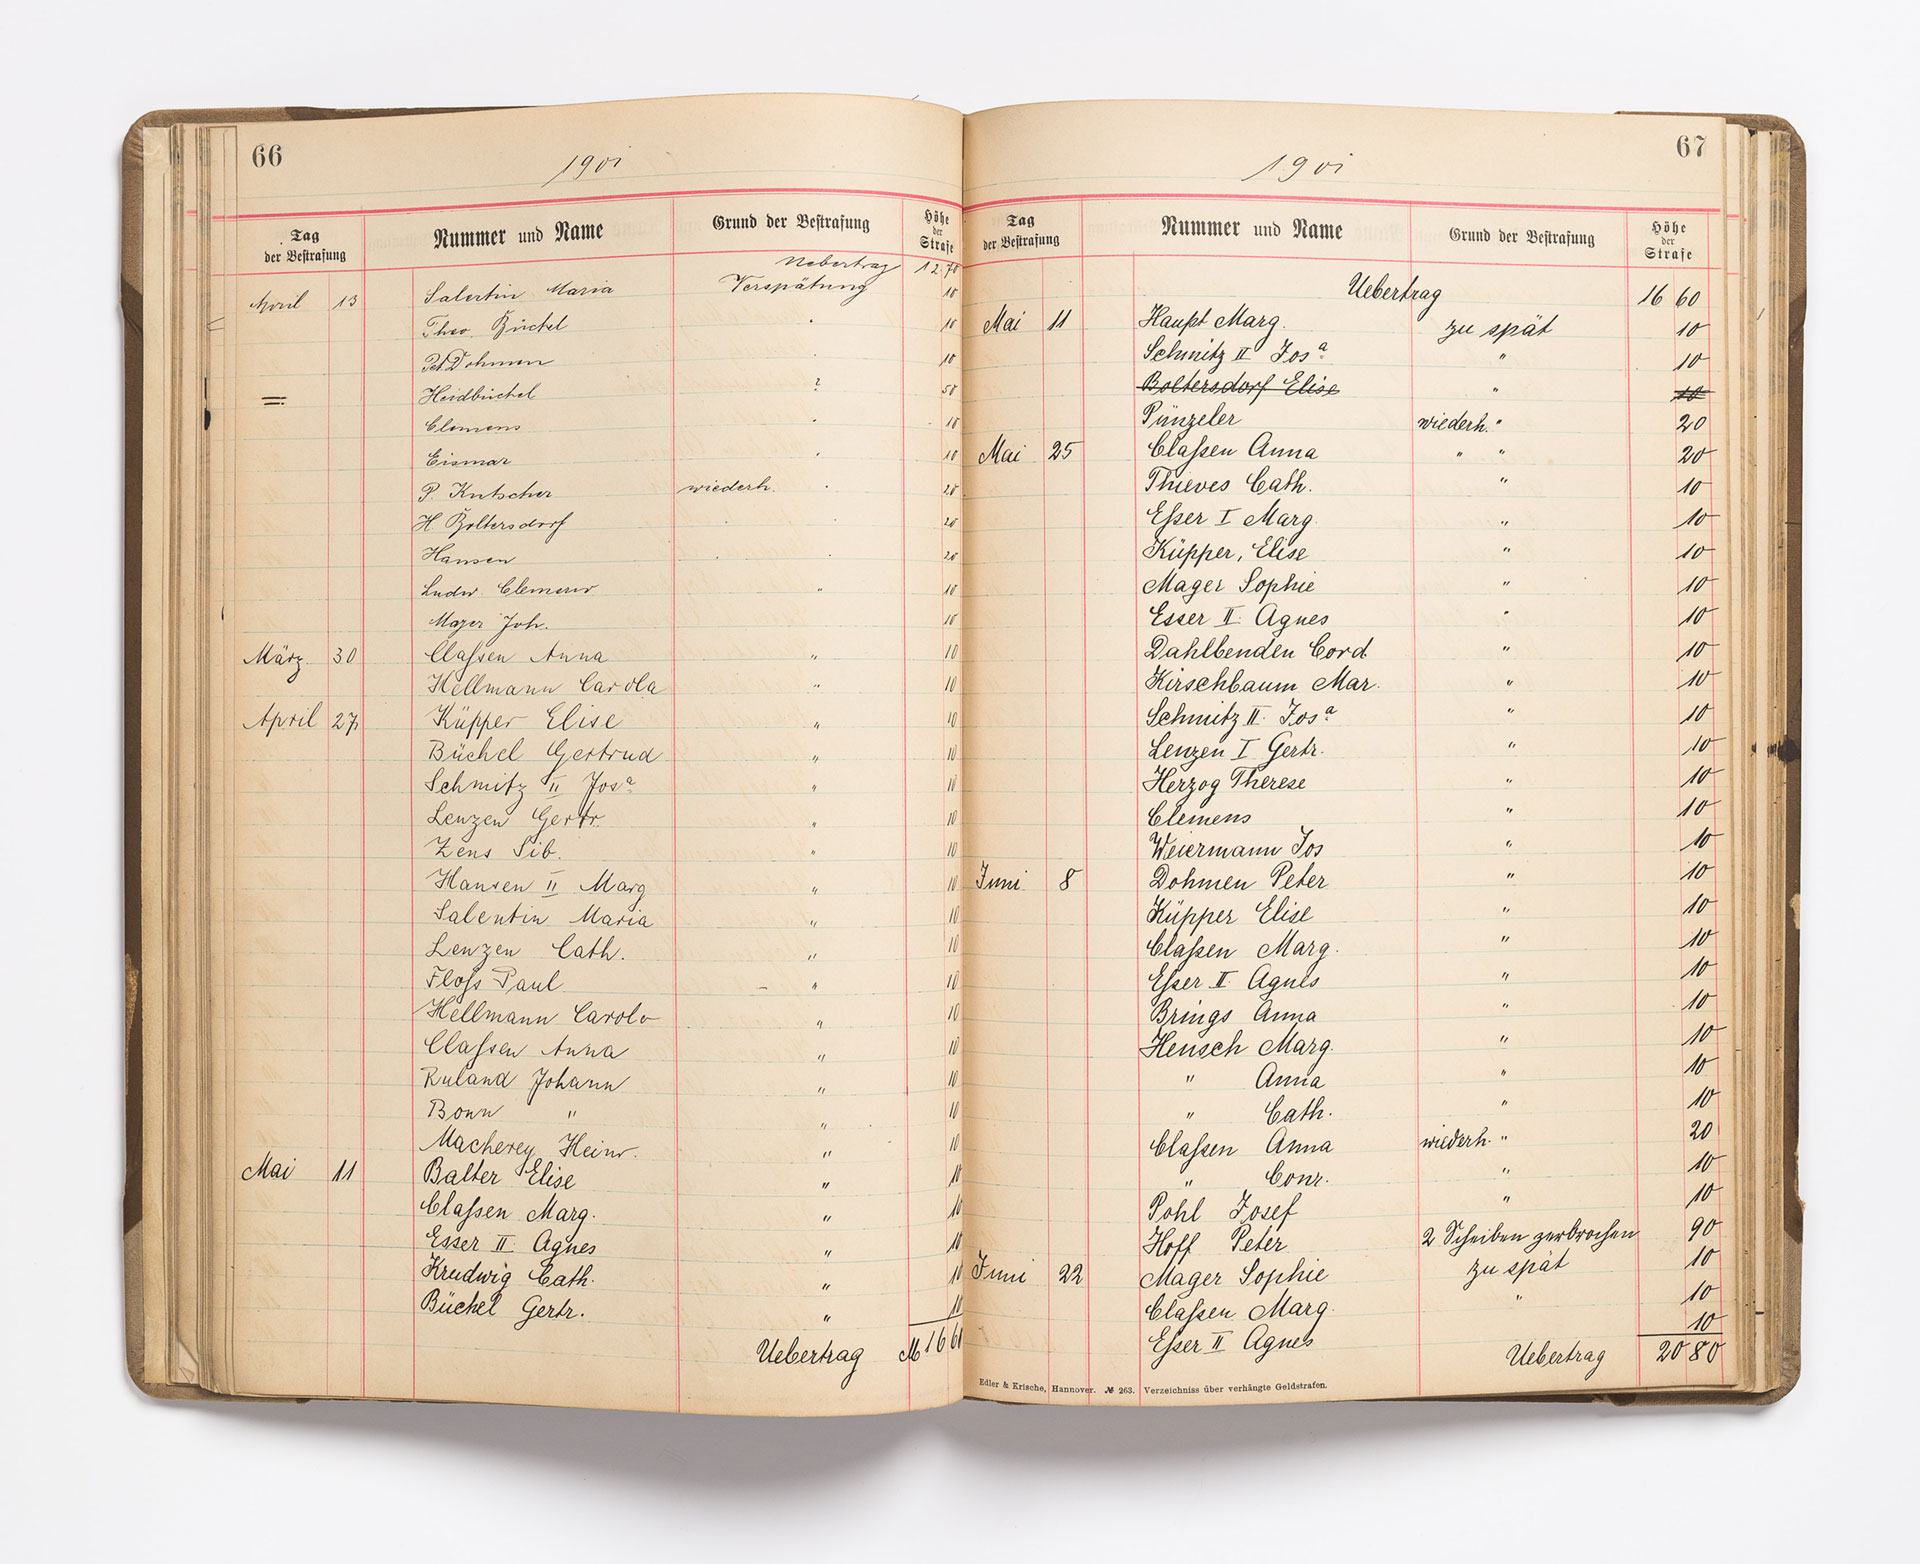 66
1901
Tag der Bestrafung Nummer und Name Grund der Bestrafung Höhe der Strafe
Uebertrag 12.70
April 13 Salentin Maria Verspätung 10
Theo Büchel " 10
Pet. Dohmen " 10
Heidbüchel ? 50
Clemens " 10
Eismar " 10
P. Kutscher wiederh. " 20
H Boltersdorf " " 20
Hansen " " 20
Ludw. Clemens " 10
Mager Joh. 10
März 30 Claſsen Anna " 10
Hellmann Carola " 10
April 27 Küpper Elise " 10
Büchel Gertrud " 10
Schmitz II Josa " 10
Lenzen Gertr. " 10
Zens Sib. " 10
Hansen II Marg " 10
Salentin Maria " 10
Lenzen Cath. " 10
Floſs Paul " 10
Hellmann Carola " 10
Claſsen Anna " 10
Ruland Johann " 10
Bonn " " 10
Macherey Heinr. " 10
Mai 11 Balter Elise " 10
Claſsen Marg. " 10
Esser II Agnes " 10
Krudwig Cath. " 10
Büchel Gertr. " 10
Uebertrag M 16 60
67
1901
Tag der Bestrafung Nummer und Name Grund der Bestrafung Höhe der Strafe
Uebertrag 16 60
Mai 11 Haupt Marg. zu spät 10
Schmitz II Josa " 10
Boltersdorf Elise " 10
Pünzeler wiederh. " 20
Mai 25 Claſsen Anna " " 20
Thieves Cath. " 10
Eſser I Marg. " 10
Küpper, Elise " 10
Mager Sophie " 10
Esser II Agnes " 10
Dahlbenden Cord. " 10
Kirschbaum Mar. " 10
Schmitz II. Josa " 10
Lenzen I Gertr. " 10
Herzog Therese " 10
Clemens " 10
Weiermann Jos " 10
Juni 8 Dohmen Peter " 10
Küpper Elise " 10
Claſsen Marg. " 10
Eſser II Agnes " 10
Brings Anna " 10
Hensch Marg. " 10
" Anna " 10
" Cath. " 10
Claſsen Anna wiederh. " 20
" Conr. " 10
Pohl Josef " 10
Hoff Peter 2 Scheiben zerbrochen 90
Juni 22 Mager Sophie zu spät 10
Claſsen Marg. " 10
Eſser II Agnes 10
Uebertrag 20 80
Edler & Krische, Hannover. № 263. Verzeichniss über verhängte Geldstrafen.